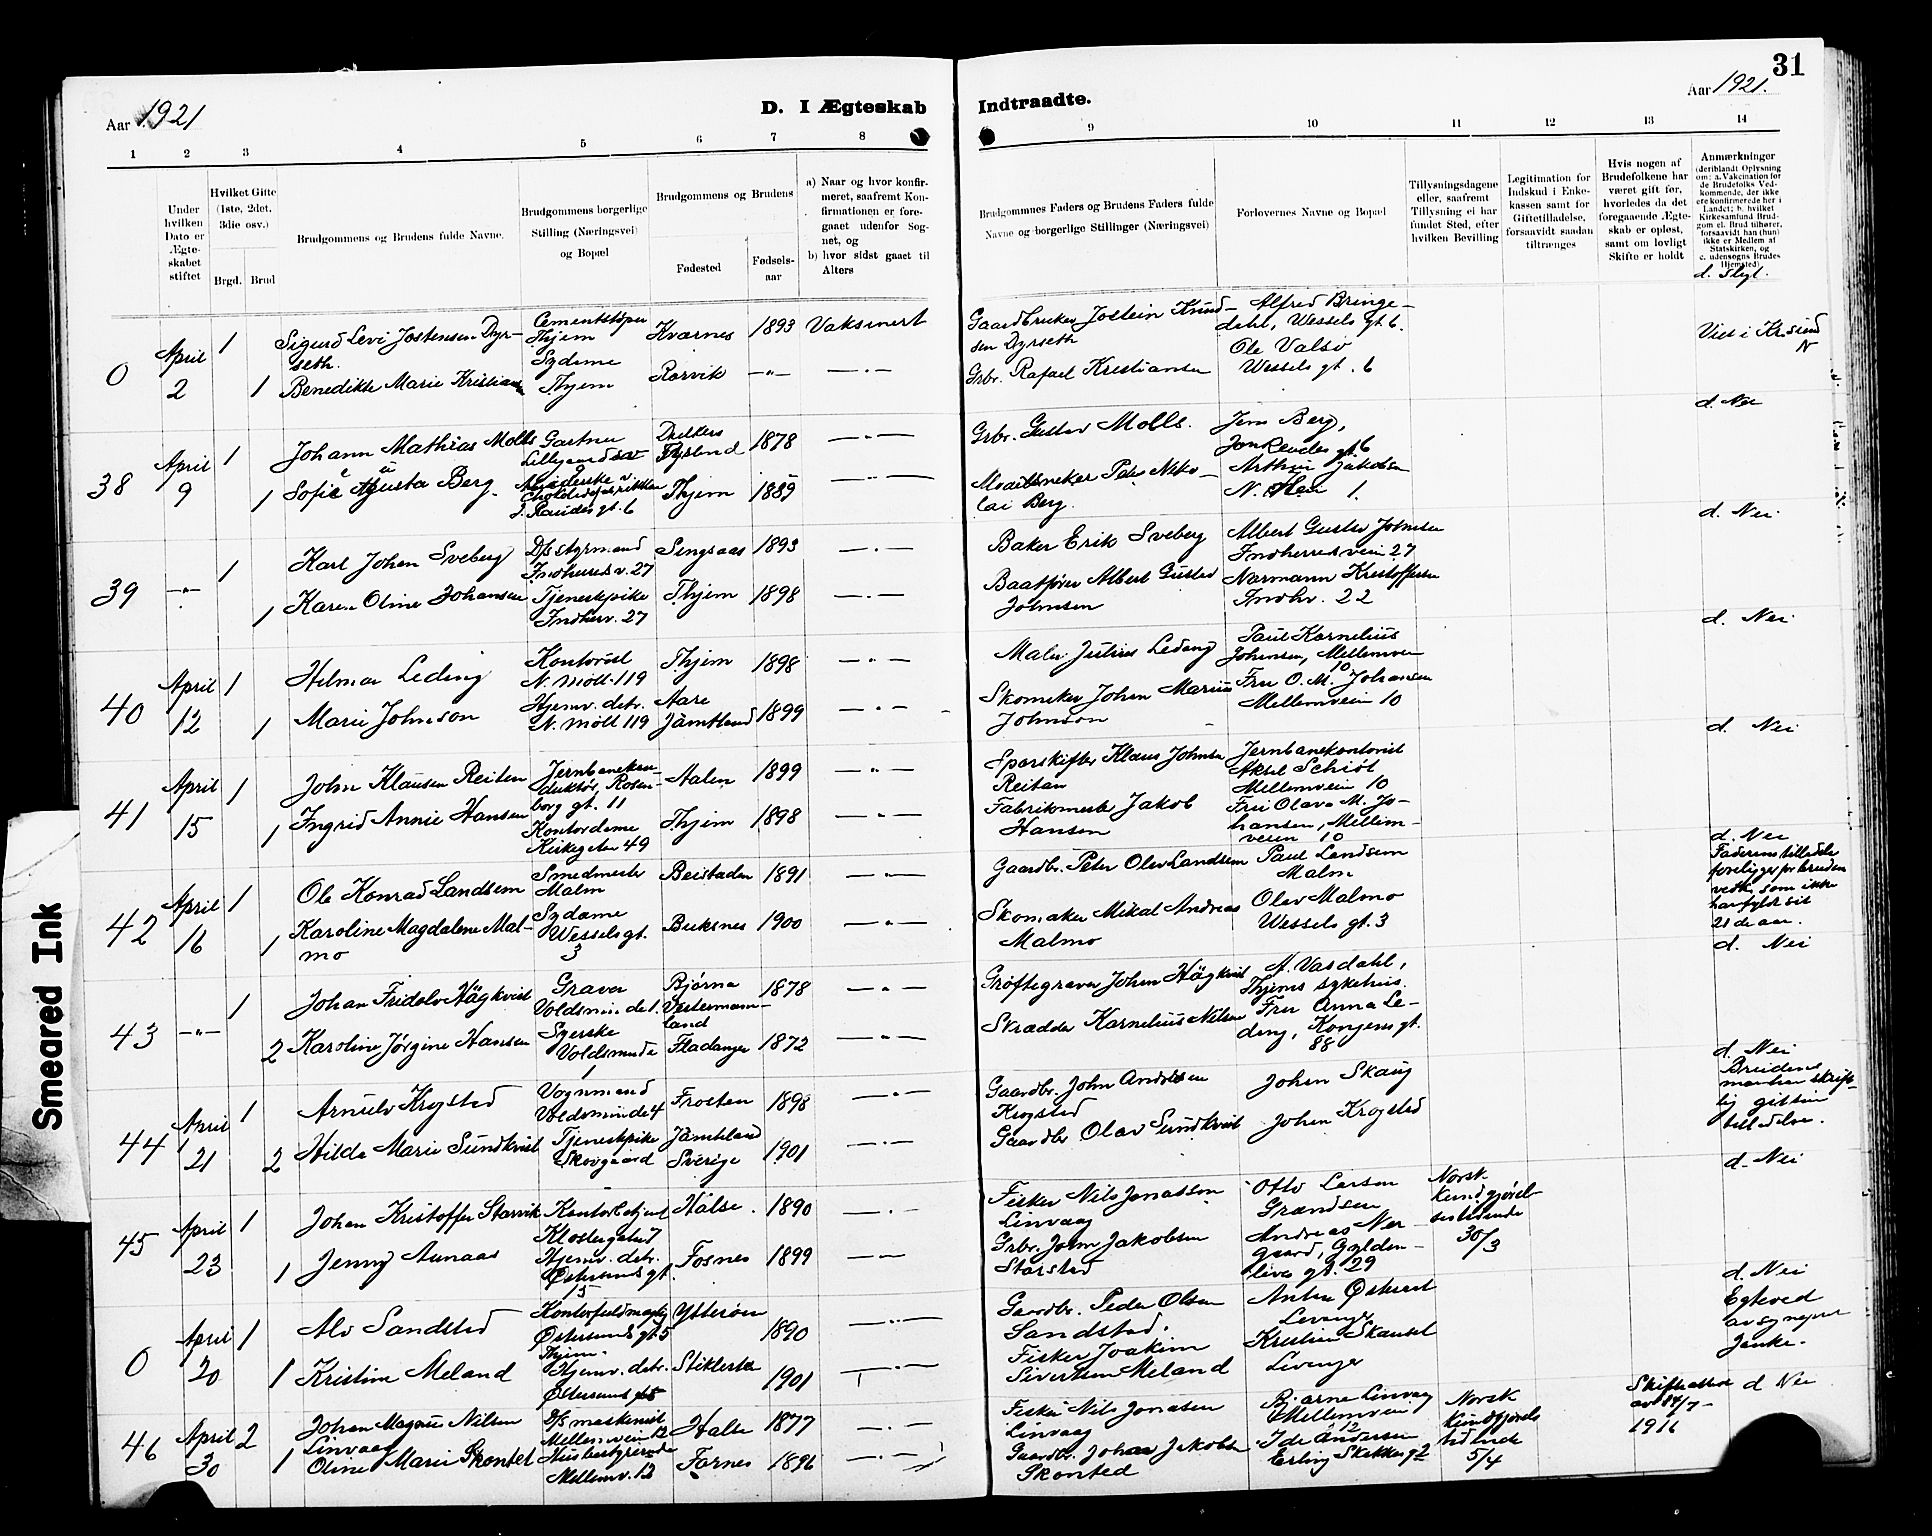 31
Aar 1921
D. I Ægteskab
Indtraadte.
Aar 1921.
1 2 3 4 5 6 7 8
9 10 11 12 13 14
Under hvilken Dato er Ægteskabet stiftet
Hvilket Gifte (1ste, 2det, 3die osv.)
Brgd. Brud
Brudgommens og Brudens fulde Navne.
Brudgommens borgerlige Stilling (Næringsvei) og Bopæl
Brudgommens og Brudens
Fødested
Fødselsaar
a) Naar og hvor konfirmeret, saafremt Konfirmationen er foregaaet udenfor Sognet, og
b) hvor sidst gaaet til Alters
Brudgommnes Faders og Brudens Faders fulde Navne og borgerlige Stillinger (Næringsvei)
Forlovernes Navne og Bopæl
Tillysningsdagene eller, saafremt Tillysning ei har fundet Sted, efter hvilken Bevilling
Legitimation for Indskud i Enkekassen samt for Giftetilladelse, forsaavidt saadan tiltrænges
Hvis nogen af Brudefolkene har været gift før, hvorledes da det foregaaende Ægteskab er opløst, samt om lovligt Skifte er holdt
Anmærkninger
(deriblandt Oplysning om: a. Vakcination for de Brudefolks Vedkommende, der ikke ere konfirmerede her i Landet; b. hvilket Kirkesamfund Brudgom el. Brud tilhører, forsaavidt han (hun) ikke er Medlem af Statskirken, og c. udensogns Brudes Hjemsted)
d. Slegt.
0
April
2
1
1
Sigurd Levi Jostensen Dyrseth.
Benedikte Marie Kristians
Cementstøper
Thjem
Sydame
Thjem
Kværnes
Rørvik
1893
Vaksinert
Gaardbruker Jostein Knudsen Dyrseth
Grbr. Rafael Kristiansen
Alfred Bringedahl, Wessels gt. 6.
Ole Valsø
Wessels gt. 6
38
April
9
1
1
Johann Mathias Molls
Sofie Agusta Berg.
Gartner
J. Randes gt. 6
Thjem
1878
1889
Grbr. Gustav Molls.
Peder Nikolai Berg.
Jens Berg,
Arthur Jakobsen
N. Ilen 1.
d. Nei
39
1
1
Karl Johan Sveberg
Karen Oline Johansen
D/s styrmand
Indherredsv. 27
Tjenestpike
Indherv. 27
Singsaas
Thjem
1893
1898
Baker Erik Sveberg
Baatfører Albert Gustav
Johnsen
Albert Gustav Johnsen
Indherredsveien 27
Normann Kristoffersen
Indhv. 22
d. Nei
40
April
12
1
1
Hilmar Leding
Marie Johnson
Kontorist
N. Møll. 119
Hjemv. detr.
N. Møll 119
Thjem
Aare
Jämtland
1898
1899
Maler Julius Leding
Skomaker Johan Marius
Johnson
Paul Kornelius
Johansen, Mellemveien
10
Fru O. M. Johansen
Mellemveien 10
d. Nei
41
April
15
1
1
John Klausen Reitan
Ingrid Annie Hansen
Jernbanekonduktør, Rosenborg gt. 11
Kontordame
Kirkegaten 49
Aalen
Thjem
1899
1898
Sporskifter Klaus Johnsen
Reitan
Fabrikmester Jakob
Hansen
Jernbanekontorist
Aksel Schiøt
Mellemveien 10
Fru Olava M. Johansen, Mellemveien 10
d. Nei
42
April
16
1
1
Ole Konrad Landsem
Karoline Magdalene Malmo
Smedmester
Malm
Sydame
Wessels gt.
3
Beistaden
Buksnes
1891
1900
Gaardbr. Peter Olav Landsem
Skomaker Mikal Andreas
Malmo
Paul Landsem
Malm
Olav Malmo
Wessels gt. 3
d. Nei
Faderens tilladelse
foreligger for bruden
vedk, som ikke
har fyldt sit
21 de aar.
43
1
2
Johan Fridolv Hägkvist
Karoline Jørgine Hansen
Graver
Voldsminde 1.
Syerske
Voldsminde
1
Bjørna
Vestermanland
Fladanger
1878
1872
Grøftegraver Johan Hägkvist
Skrædder Kornelius Nilsen
A. Vasdahl,
Thjems sykehus.
Fru Anna Leding, Kongens gt.
88
d. Nei
44
April
21
1
2
Arnulv Krogstad
Hilda Marie Sundkvist
Vognmand
Voldsminde 4
Tjenestpike
Skovgaard
Frosten
Jämtland
Sverige
1898
1901
Gaardbr. John Andersen
Krogstad
Gaardbr Olav Sundkvist
Johan Skaug
Johan Krogstad
d. Nei
Brudens
man har skriftlig git sin
tilladelse.
45
April
23
1
1
Johan Kristoffer Starvik
Jenny Aunaas
Kontorbetjent
Klostergatud
Hjemv. detr.
Østersunds gt.
15
Halse.
Fosnes
1890
1899
Fisker Nils Jonasson
Linvaag
Grbr. John Jakobsen
Starstad
Otto Larsen
Grandsen
Andreas Nergaard, Gyldenløves gt. 29
Norsk
Kundgjørelsestidende
30/3
d. Nei
0
April
20
1
1
Alv Sandstad
Kristine Meland
Kontorfuldmægtig
Østersunds gt. 5
Thjem.
Hjemv. detr.
Østersunds gt 5
Ytterøen
Stiklestad
1890
1901
Gaardbr. Peder Olsen
Sandstad.
Fisker Joakim
Sivertsen Meland
Anton Østerut
Levanger
Kristian Skansel
Levanger
d. Nei
Egtevied
av sogneprest
Janke.
46
April
30
2
1
Johan Magnus Nilsen
Linvaag
Oline Marie Skontel
D/s maskinist
Mellemveien 12
Husbestyrerinde
Mellemv. 12
Halse
Fornes
1877
1896
Fisker Nils Jonasen
Linvaag
Gaardbr. Johan Jakobsen
Skonted
Bjarne Linvaag
Mellemvei
12
Ida Andersen
Erling Skakkes g 2
Norsk
Kundgjørelstidende
5/4
Skifteattest
av 14/7 -
1916
d. Nei
Smeared Ink